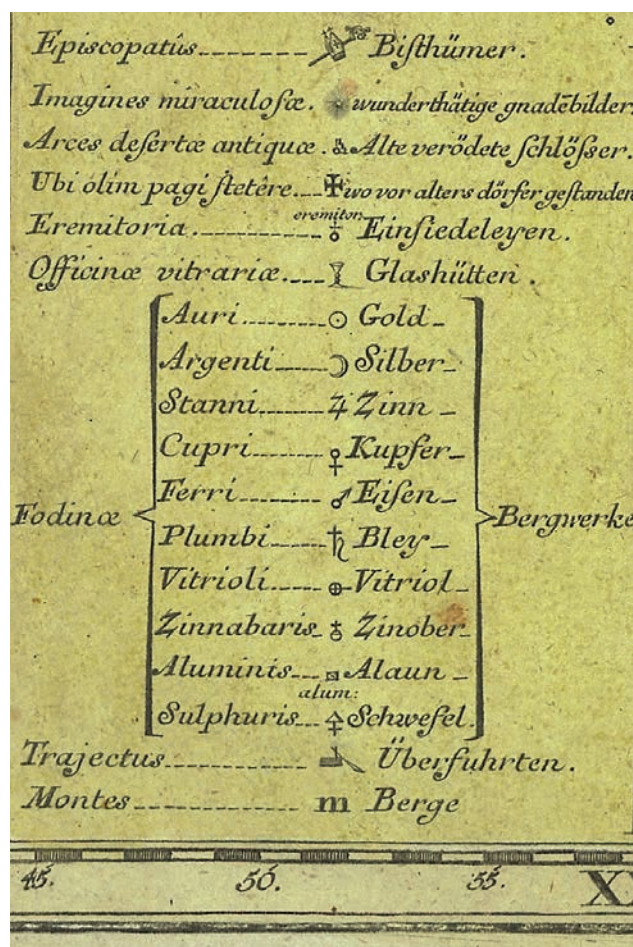 Episcopatûs Biſthümer.
Imagines miraculoſæ. wunderthätige gnadēbilder.
Arces deſertæ antiquæ. Alte verödete ſchlöſſer.
Ubi olim pagi ſtetêre. wo vor alters dörfer geſtanden
eremiton:
Eremitoria. Einſiedeleyen.
Officinæ vitrariæ. Glashütten.
Auri ☉ Gold
Argenti ☽ Silber
Stanni ♃ Zinn
Cupri ♀ Kupfer
Ferri ♂ Eiſen
Fodinæ Bergwerke
Plumbi ♄ Bley
Vitrioli Vitriol
Zinnabaris ♁ Zinober
Aluminis Alaun
alum:
Sulphuris Schwefel.
Trajectus Überfuhrten.
Montes m Berge
45. 50. 55. X